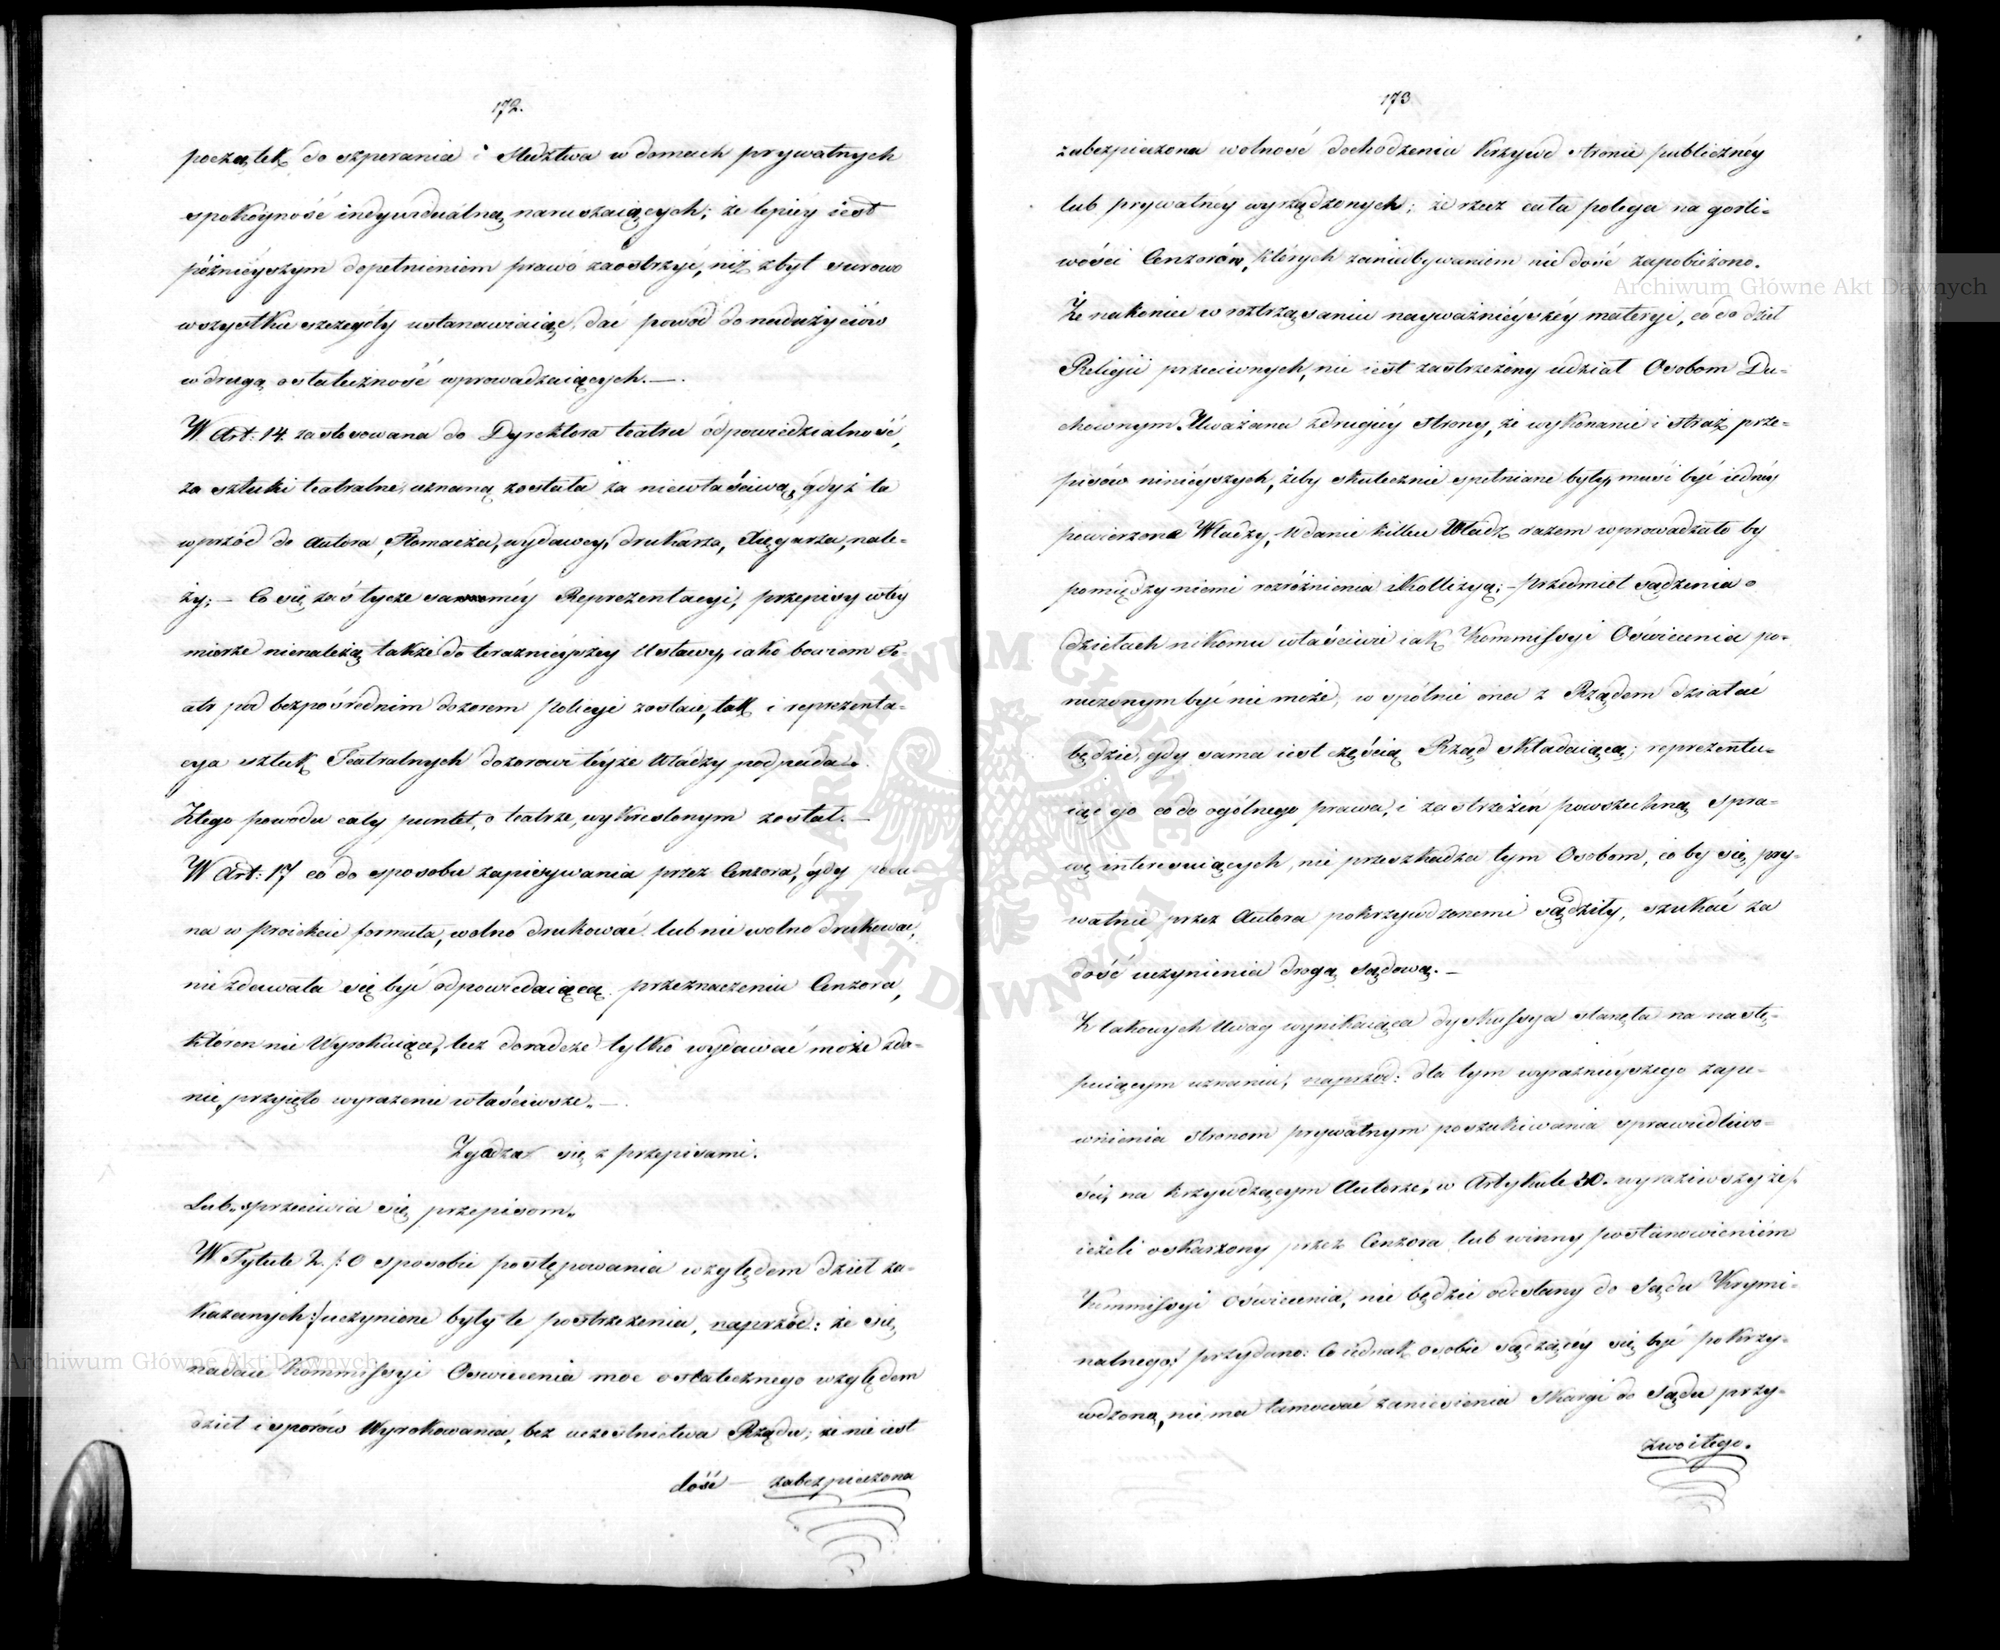 172.
początek do szperania i śledztwa w domach prywatnych
spokoyność indywidualną naruszaiących; że lepiéy iest
późnieyszym dopełnieniem prawo zaostrzyć, niż zbyt surowo
wszystkie szczegóły ustanawiaiąc, dać powód do nadużyciów
w drugą ostateczność wprowadzaiących. —
W Art: 14. zastosowana do Dyrektora teatru odpowiedzialność,
za sztuki teatralne, uznaną została za niewłaściwą, gdyż ta
wprzód do Autora, Tłomacza, wydawcy, drukarza, Xięgarza, nale-
ży; — Co się zaś tycze samey Reprezentacyi, przepisy w téy
mierze nienależą także do teraznieyszey Ustawy, iako bowiem Te-
atr pod bezpośrednim dozorem Policyi zostaie, tak i reprezenta-
cya sztuk Teatralnych dozorowi téyże Władzy podpada.
Z tego powodu cały punkt, o teatrze, wykreślonym został. —
W Art: 17 co do sposobu zapisywania przez Cenzora, gdy poda-
na w proiekcie formuła, wolno drukować lub nie wolno drukować,
nie zdawała się być odpowiedaiącą przeznaczeniu Cenzora,
któren nie Wyrokuiące, lecz doradcze tylko wydawać może zda-
nie, przyięto wyrażenie właściwsze. —
Zgadza się z przepisami.
Lub sprzeciwia się przepisom.
W Tytule 2. /: O sposobie postępowania względem dzieł za-
kazanych :/ uczynione były te postrzeżenia, naprzód: że się
nadaie Kommissyi Oswiecenia moc ostatecznego względem
dzieł i sporów Wyrokowania, bez uczestnictwa Rządu; że nie iest
dość — zabezpieczona
173
zabezpieczona wolność dochodzenia krzywd stronie publicznéy
lub prywatnéy wyrządzonych; że rzecz cała polega na gorli-
wości Cenzorów, których zaniedbywaniem nie dość zapobieżono.
Że nakoniec w roztrząsaniu nayważnieyszéy materyi, co do dzieł
Religii przeciwnych, nie iest zastrzeżony udział Osobom Du-
chownym. Uważana z drugiéy strony, że wykonanie i straż prze-
pisów ninieyszych, żeby skutecznie spełniane były, musi być iednéy
powierzona Władzy, wdanie kilku Władz razem wprowadzało by
pomiędzy niemi rozróżnienia i Kollizyą; — przedmiot sądzenia o
dziełach nikomu właściwie iak Kommissyi Oświecenia po-
ruczonym być nie może, w spólnie ona z Rządem działać
będzie, gdy sama iest częścią Rząd składaiącą; reprezentu-
iąc go co do ogólnego prawa, i zastrzeżeń powszechną spra-
wę interesuiących, nie przeszkadza tym Osobom, co by się pry-
watnie przez Autora pokrzywdzonemi sądziły, szukać za
dość uczynienia drogą sądową. —
Z takowych Uwag wynikaiąca dyskussya stanęła na nastę-
puiącym uznaniu; naprzód: dla tym wyraźnieyszego zape-
wnienia stronom prywatnym poszukiwania sprawiedliwo-
ści, na krzywdzącym Autorze, w Artykule 30. wyraziwszy że /.
ieżeli oskarżony przez Cenzora lub winny postanowieniem
Kommissyi Oświecenia, nie będzie odesłany do Sądu Krymi-
nalnego :/ przydano: Co iednak osobie sądzącéy się być pokrzy-
wdzoną, nie ma tamować zaniesienia skargi do Sądu przy-
zwoitego.
Archiwum Główne Akt Dawnych
Archiwum Główne Akt Dawnych
ARCHIWUM GŁÓWNE AKT DAWNYCH